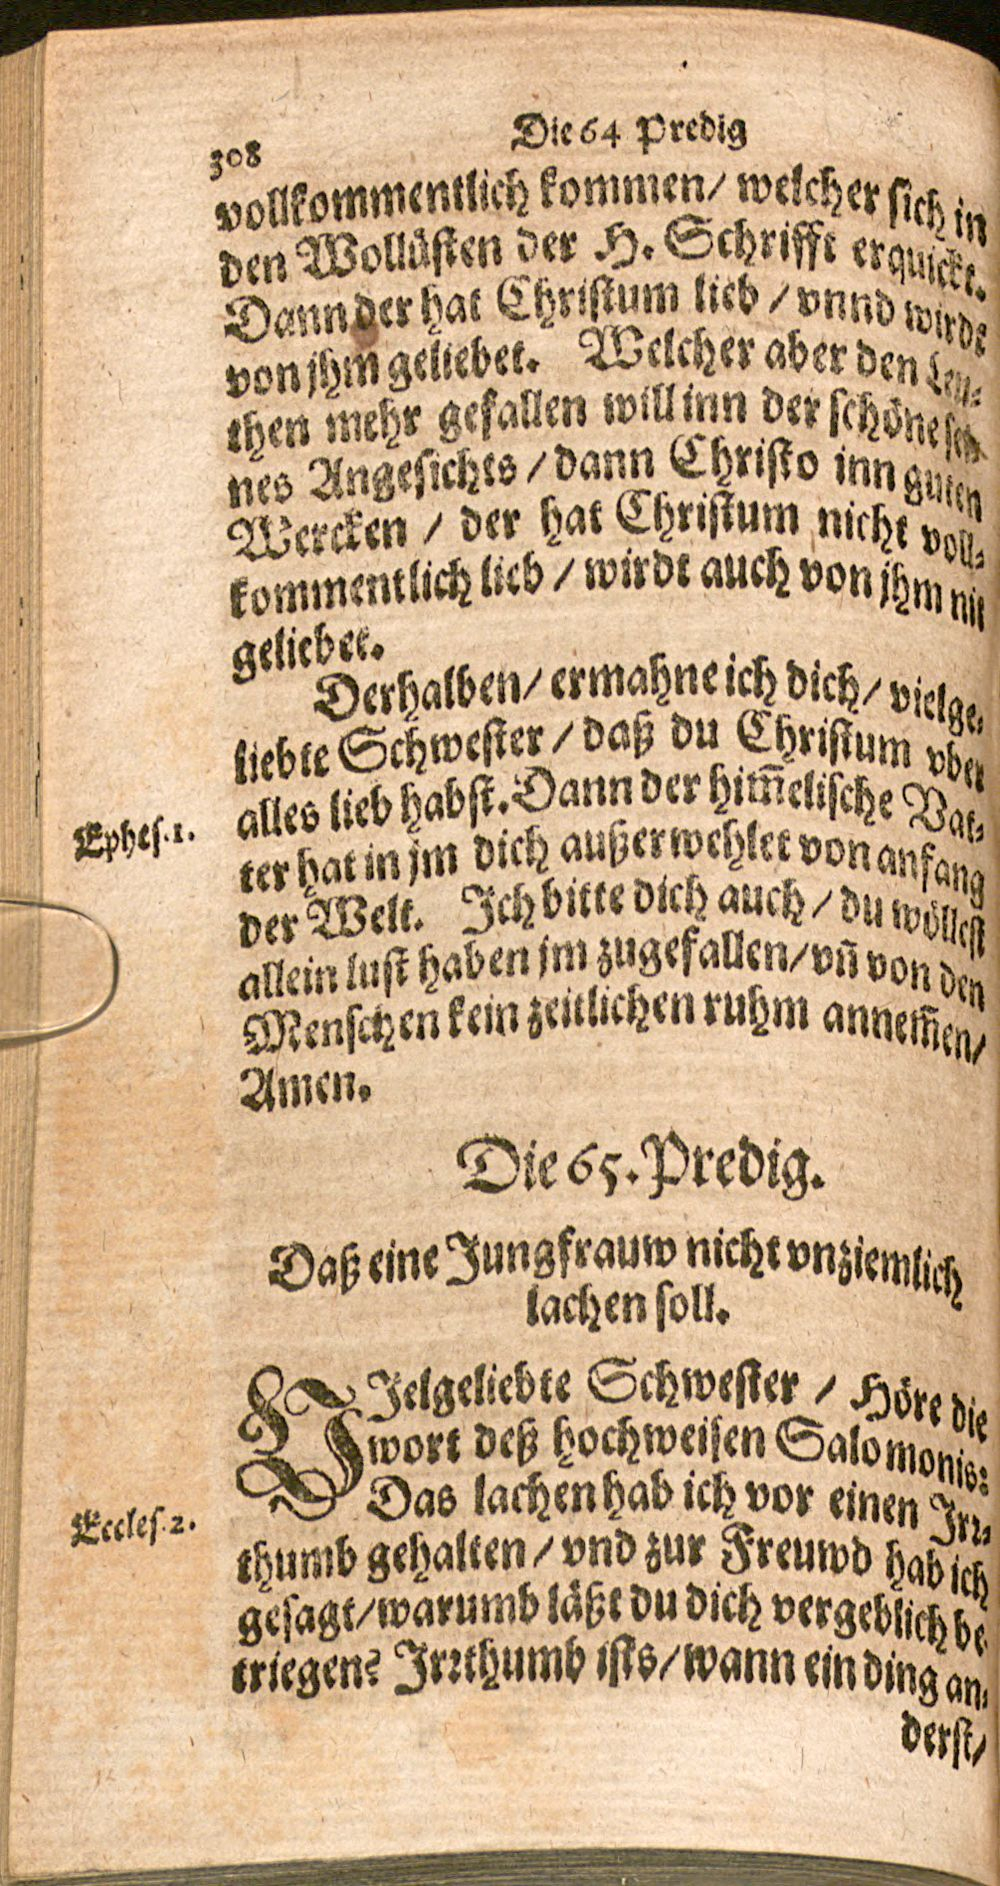 308
Die 64 Predig
vollkommentlich kommen/ welcher sich in
den Wollüsten der H. Schrifft erquickt.
Dann der hat Christum lieb / vnnd wirdt
von jhm geliebet. Welcher aber den Leu-
then mehr gefallen will inn der schöne sei-
nes Angesichts / dann Christo inn guten
Wercken / der hat Christum nicht voll-
kommentlich lieb / wirdt auch von jhm nit
geliebet.
Derhalben/ ermahne ich dich/ vielge-
liebte Schwester / daß du Christum vber
alles lieb habst. Dann der him̃elische Vat-
Ephes. 1.
ter hat in jm dich außerwehlet von anfang
der Welt. Ich bitte dich auch / du wöllest
allein lust haben jm zugefallen/ vñ von den
Menschen kein zeitlichen ruhm annem̃en/
Amen.
Die 65. Predig.
Daß eine Jungfrauw nicht vnziemlich
lachen soll.
VJelgeliebte Schwester / Höre die
wort deß hochweisen Salomonis:
Das lachen hab ich vor einen Irr-
Eccles. 2.
thumb gehalten / vnd zur Freuwd hab ich
gesagt/ warumb läßt du dich vergeblich be-
triegen? Irrthumb ists/ wann ein ding an-
derst/